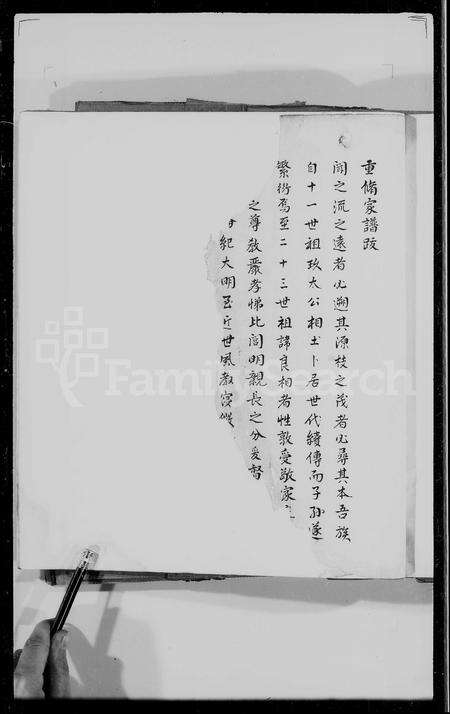 重脩家譜跋
聞之流之遠者必遡其源枝之茂者必尋其本吾族
自十一世祖玖大公相土卜居世代續傳而子孫遂
繁衍焉至二十三世祖諱良相者性敦愛敬家
之尊教嚴孝悌比閭明親長之分爰督
紀大明至近世風教寖微
FamilySearch